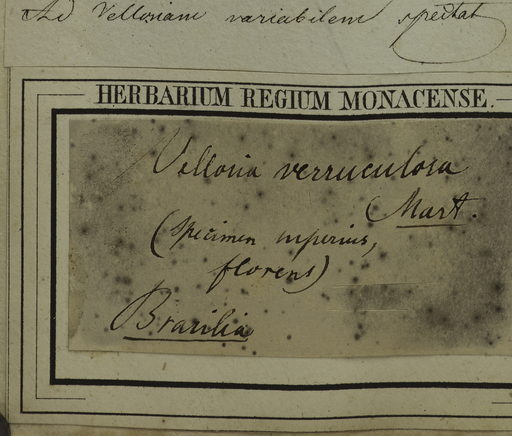 Ad Velloziam variabilem spectat
HERBARIUM REGIUM MONACENSE.
Vellozia verruculosa
Mart.
(specimen superius,
florens)
Brasilia